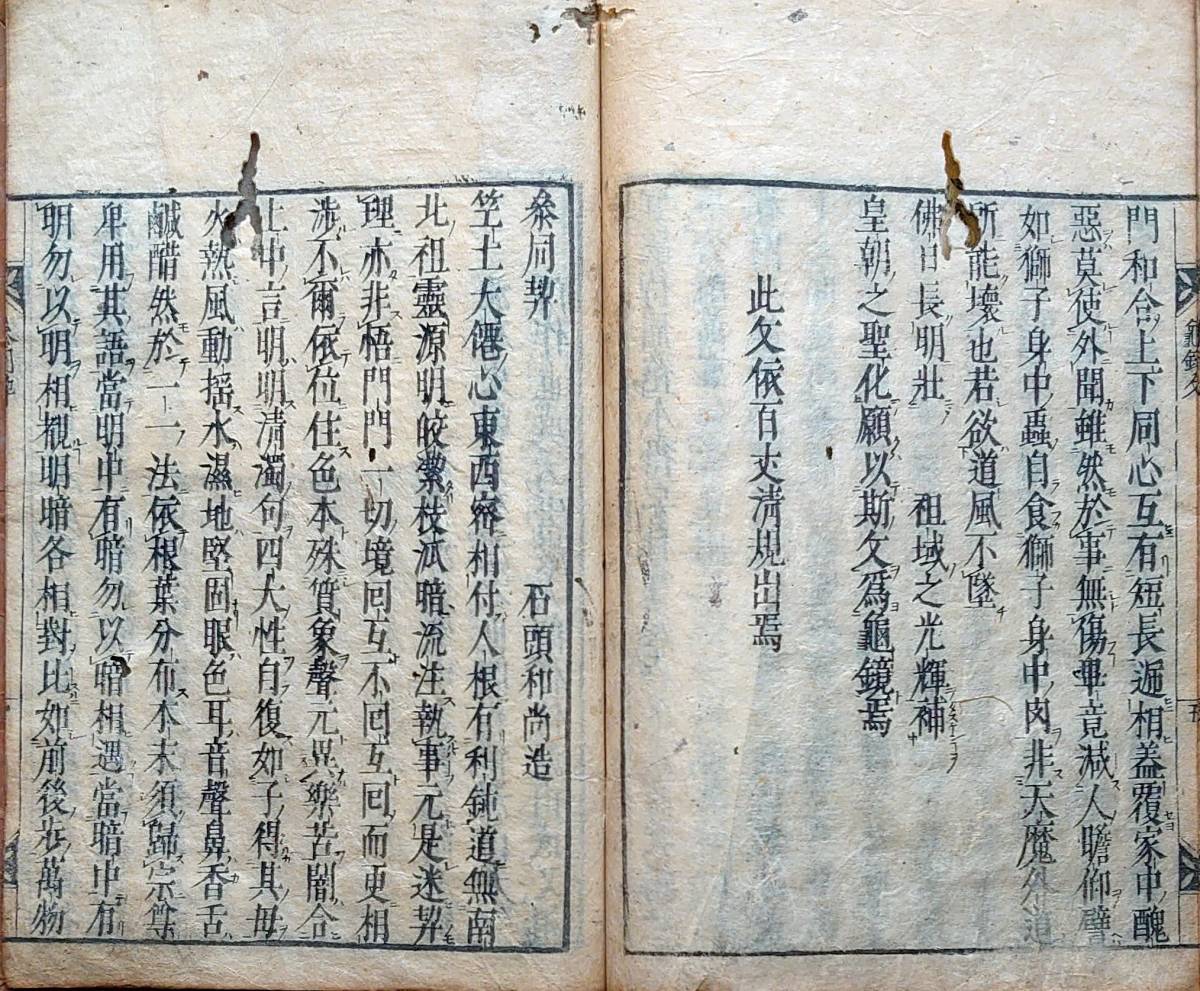 門和合上下同心互有短長遞相蓋覆家中醜
惡莫使外聞雖然於事無傷畢竟減人瞻仰譬
如獅子身中蟲自食獅子身中肉非天魔外道
所能壞也若欲道風不墜
佛日長明壯 祖域之光輝補
皇朝之聖化願以斯文爲龜鏡焉
此文依百丈清規出焉
參同契 石頭和尚造
竺土大僊心東西密相付人根有利鈍道無南
北祖靈源明皎潔枝派暗流注執事元是迷契
理亦非悟門門一切境回互不回互回而更相
涉不爾依位住色本殊質象聲元異樂苦闇合
上中言明明清濁句四大性自復如子得其母
火熱風動搖水濕地堅固眼色耳音聲鼻香舌
鹹醋然於一一法依根葉分布本末須歸宗尊
卑用其語當明中有暗勿以暗相遇當暗中有
明勿以明相覩明暗各相對比如前後步萬物